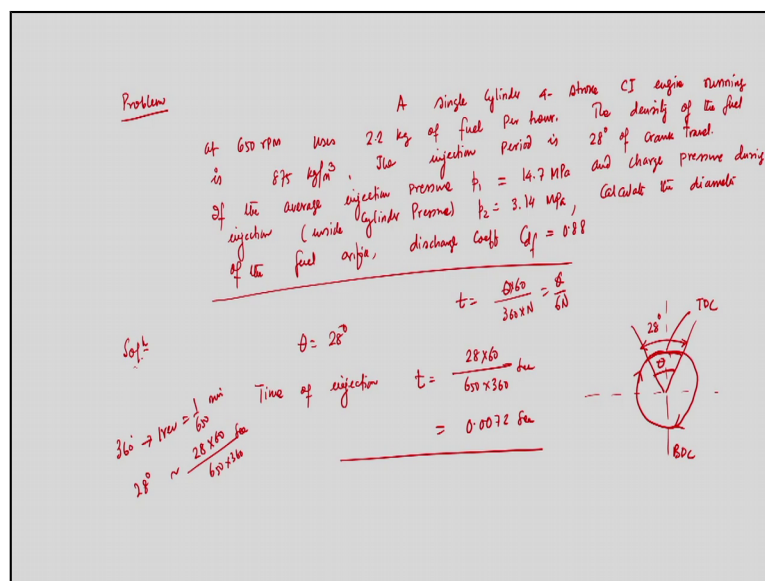 Problem A single Cylinder 4- stroke CI engine running
at 650 rpm uses 2.2 kg of fuel per hour. The density of the fuel
is 875 kg/m³. The injection period is 28° of crank travel.
If the average injection pressure p₁ = 14.7 MPa and charge pressure during
injection (inside cylinder Pressure) p₂ = 3.14 MPa, Calculate the diameter
of the fuel orifice, discharge Coeff Cdf = 0.88
t = θ×60 / 360×N = θ / 6N
Solⁿ θ = 28°
Time of injection t = 28×60 / 650×360 Sec
= 0.0072 Sec
360° → 1rev = 1/650 min
28° ~ 28×60 / 650×360 Sec
28°
TDC
θ
BDC